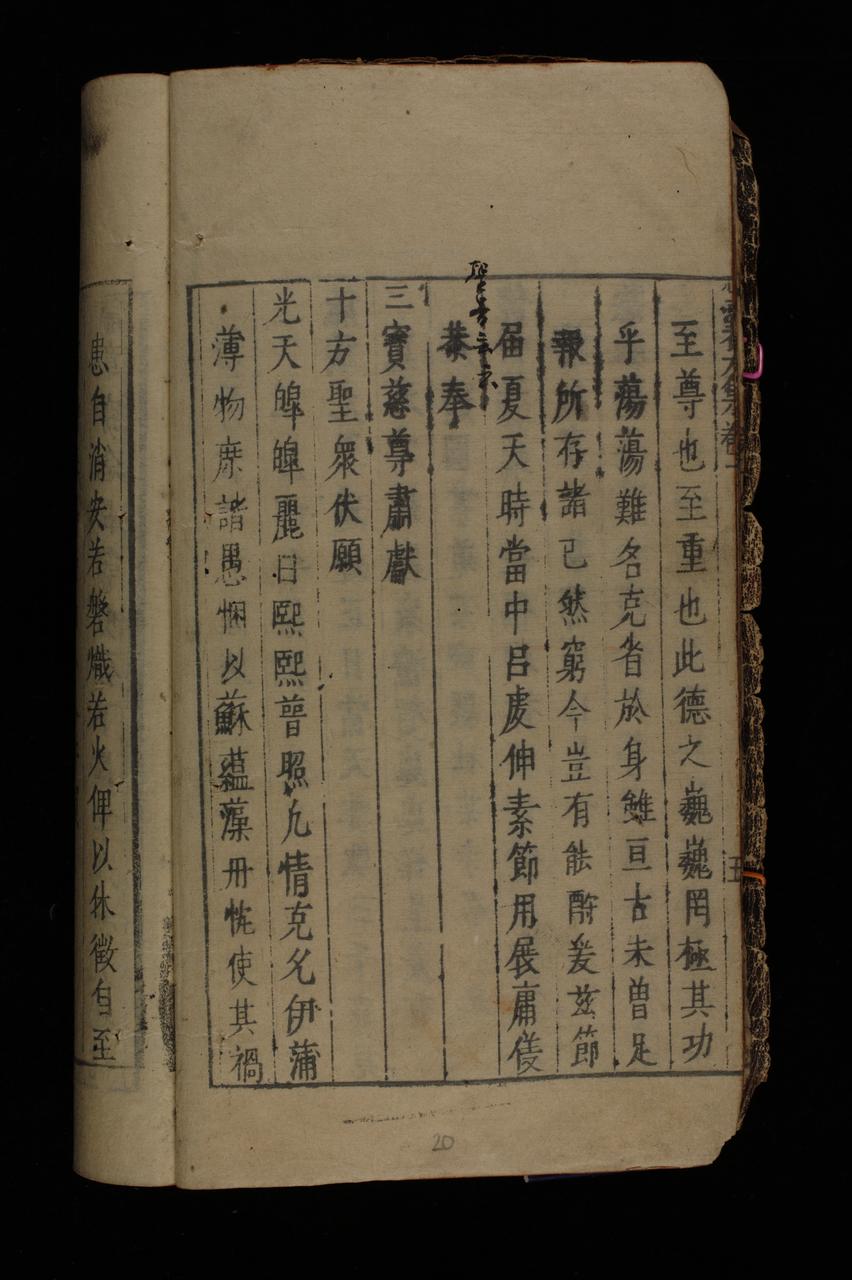 至尊也至重也此德之巍巍罔極其功
乎蕩蕩難名克省於身雖亘古未曾足
報所存諸己然窮今豈有能酧爰玆節
届夏天時當中吕虔伸素節用展庸儀
恭奉
三寶慈尊肅獻
十方聖衆伏願
光天皥皥麗日熙熙普照凢情克允伊蒲
薄物庶諸愚悃以蘇蘊藻冊忱使其禍
患自消安若磐熾若火俾以休徵自至
20